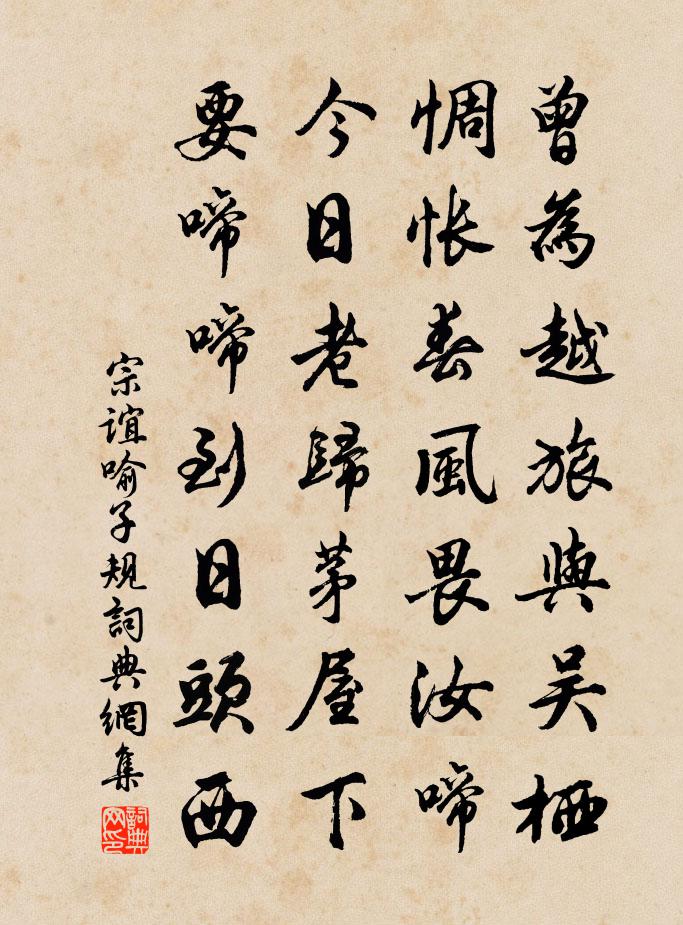 曾為越旅與吴栖
惆怅春風畏汝啼
今日老歸茅屋下
要啼啼到日頭西
宗誼喻子規詞典網集
詞典网印